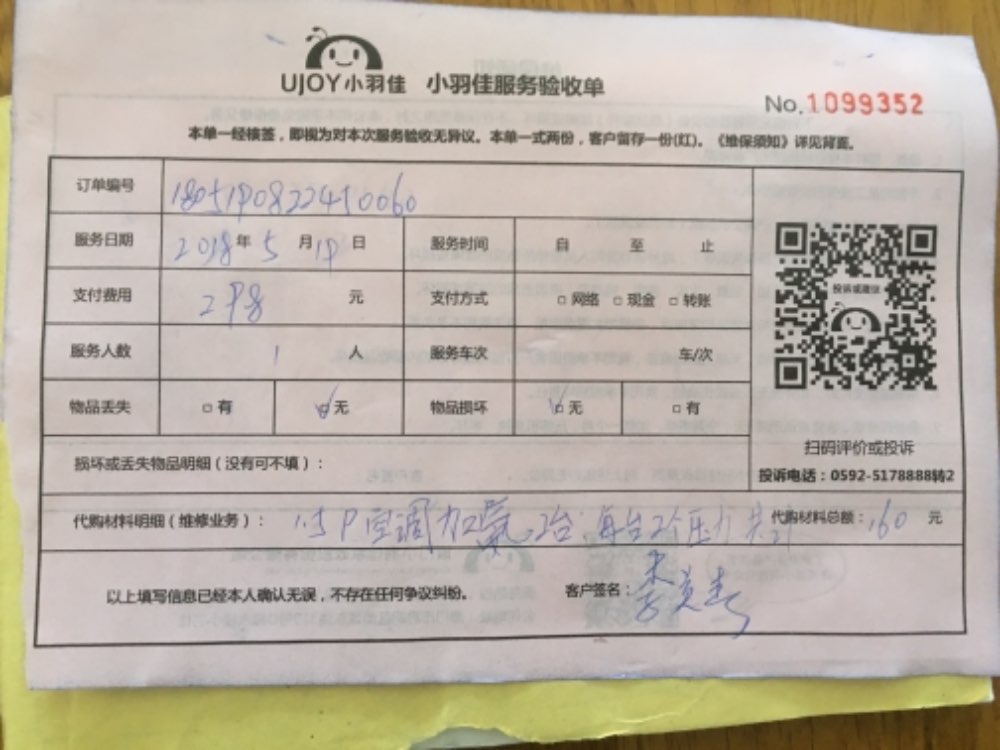 UJOY小羽佳 小羽佳服务验收单
No.1099352
本单一经核签，即视为对本次服务验收无异议。本单一式两份，客户留存一份(红)。《维保须知》详见背面。
订单编号
服务日期 2018年 5 月 19 日 服务时间 自 至 止
支付费用 298 元 支付方式 □网络 □现金 □转账
服务人数 1 人 服务车次 车/次
物品丢失 □有 □无 物品损坏 □无 □有
投诉或建议
扫码评价或投诉
投诉电话：0592-5178888转2
损坏或丢失物品明细（没有可不填）：
代购材料明细（维修业务）： 1.5P空调加氟2台，每台2个压力 共计 代购材料总额：160 元
以上填写信息已经本人确认无误，不存在任何争议纠纷。 客户签名：